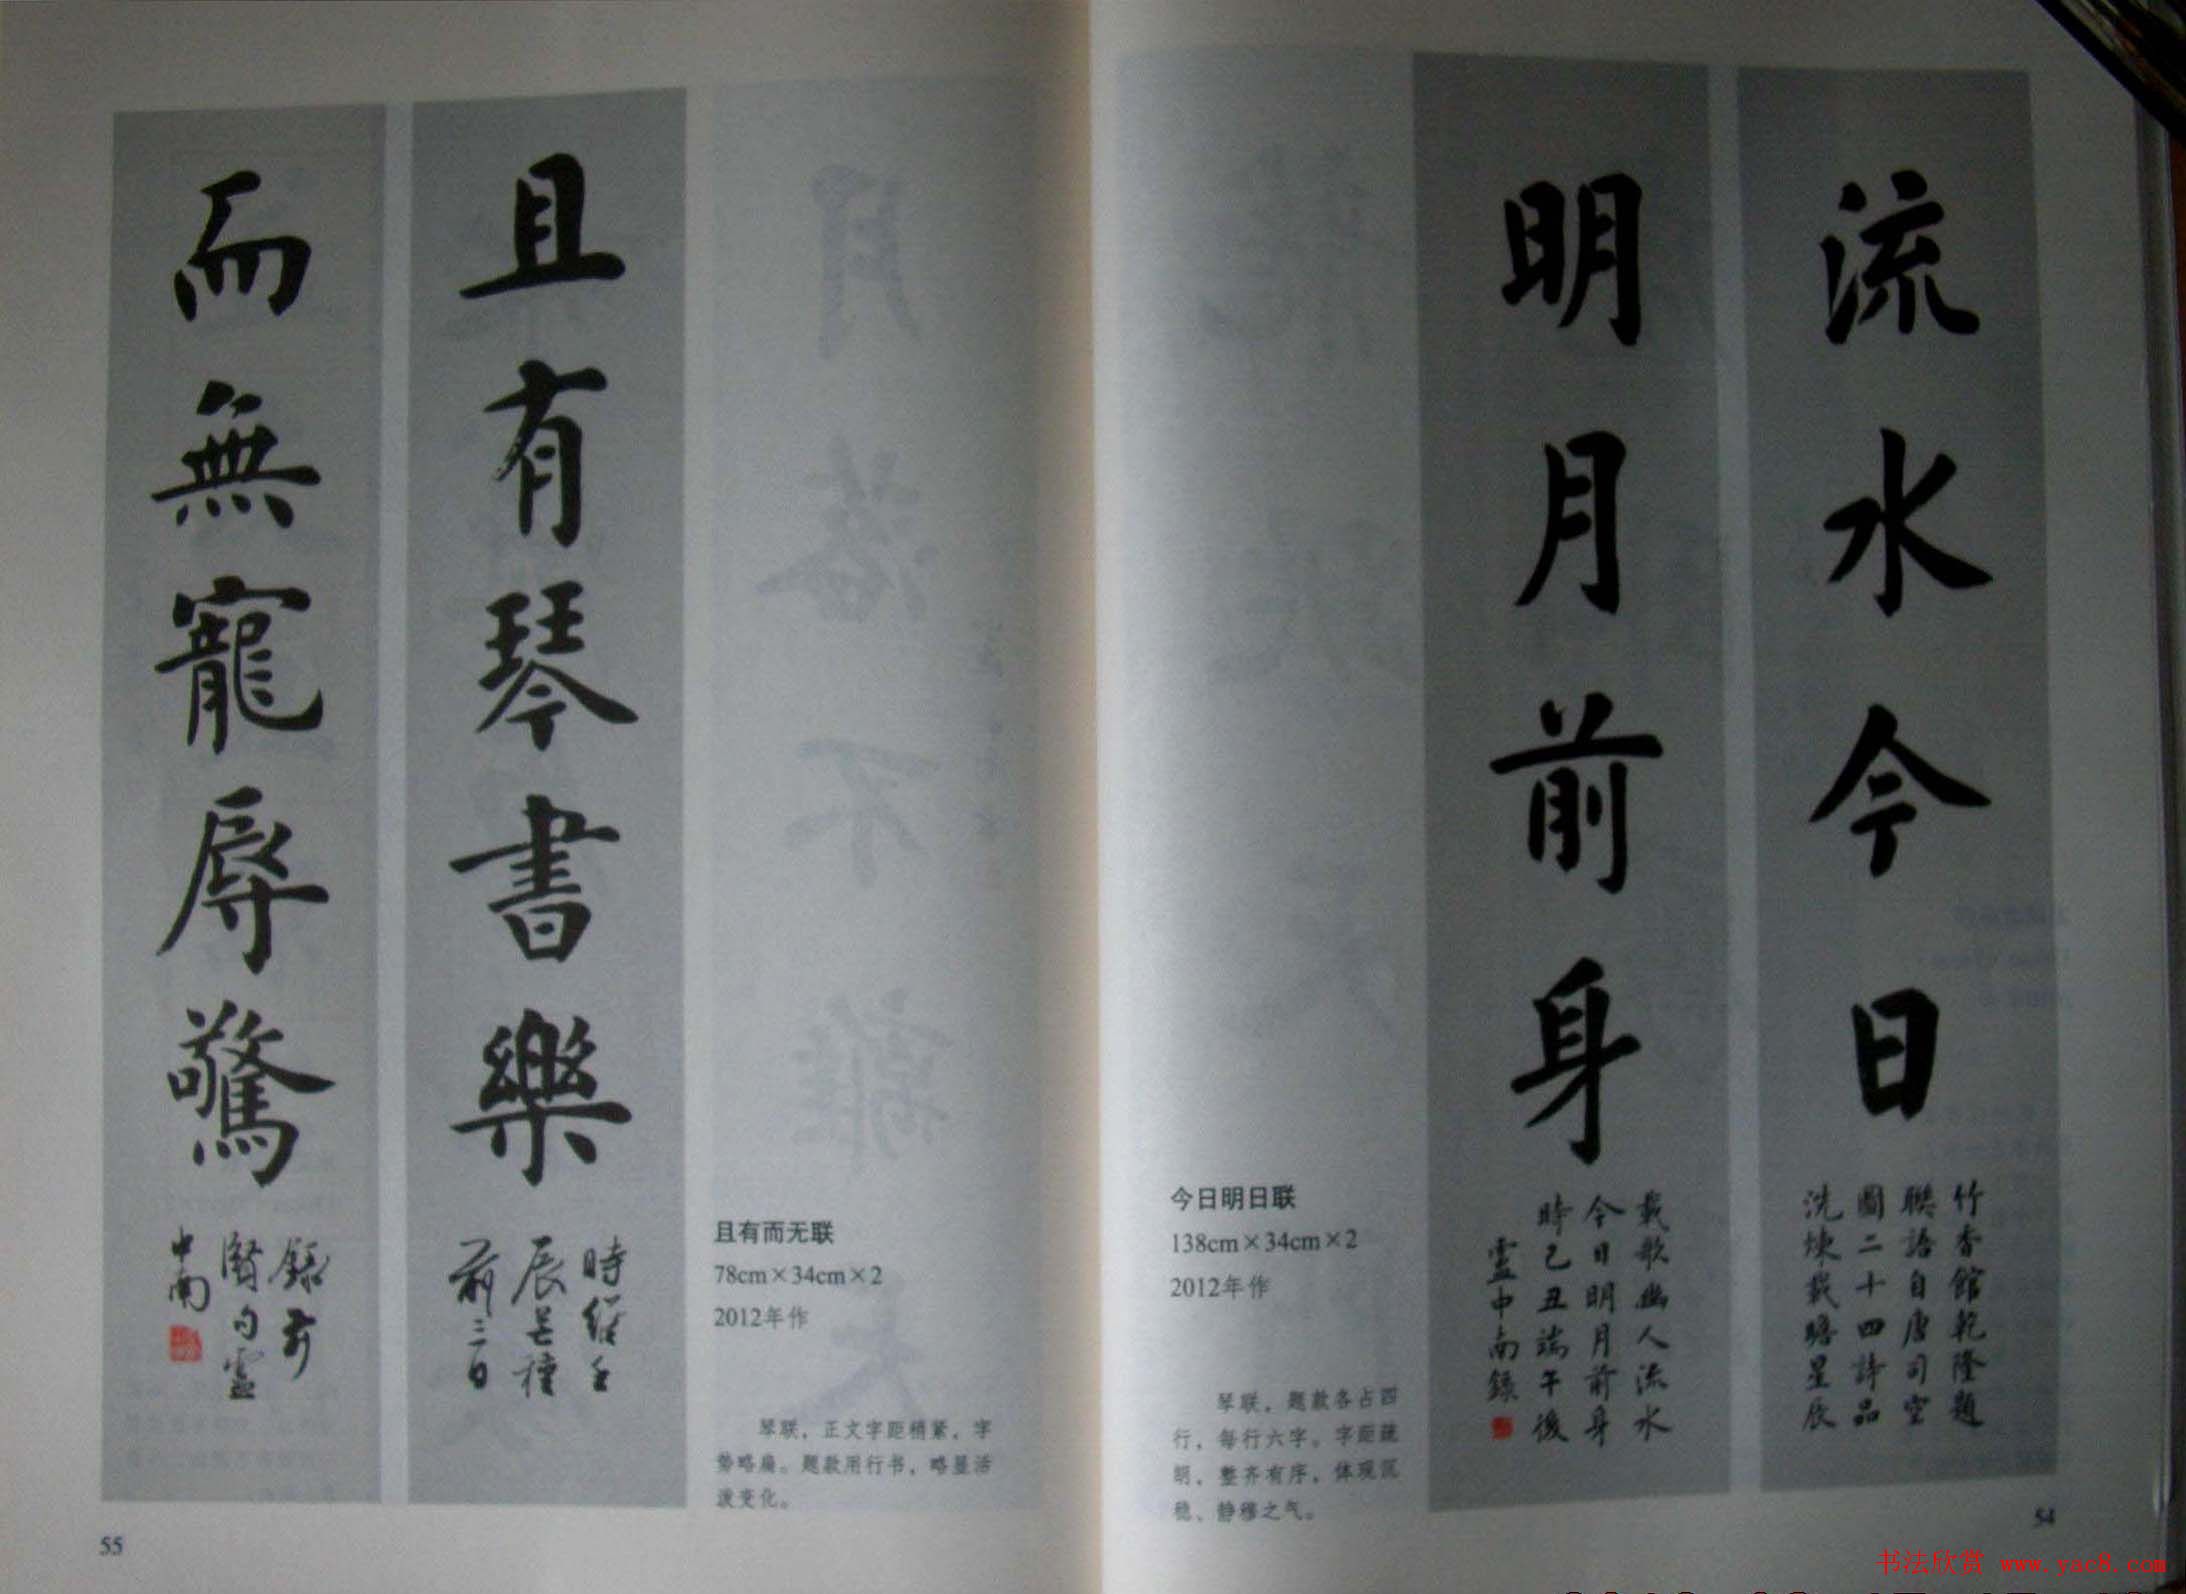 流水今日
竹香館乾隆題
聯語自唐司空
圖二十四詩品
洗煉載瞻星辰
明月前身
載歌幽人流水
今日明月前身
時己丑端午後
靈中南錄
今日明日联
138cm×34cm×2
2012年作
琴联，题款各占四
行，每行六字。字距疏
朗，整齐有序，体现沉
稳、静穆之气。
54
且有琴書樂
時維壬
辰芒種
前三日
而無寵辱驚
錄前
賢句靈
中南
且有而无联
78cm×34cm×2
2012年作
琴联，正文字距稍紧，字
势略扁。题款用行书，略显活
泼变化。
55
书法欣赏 www.yac8.com